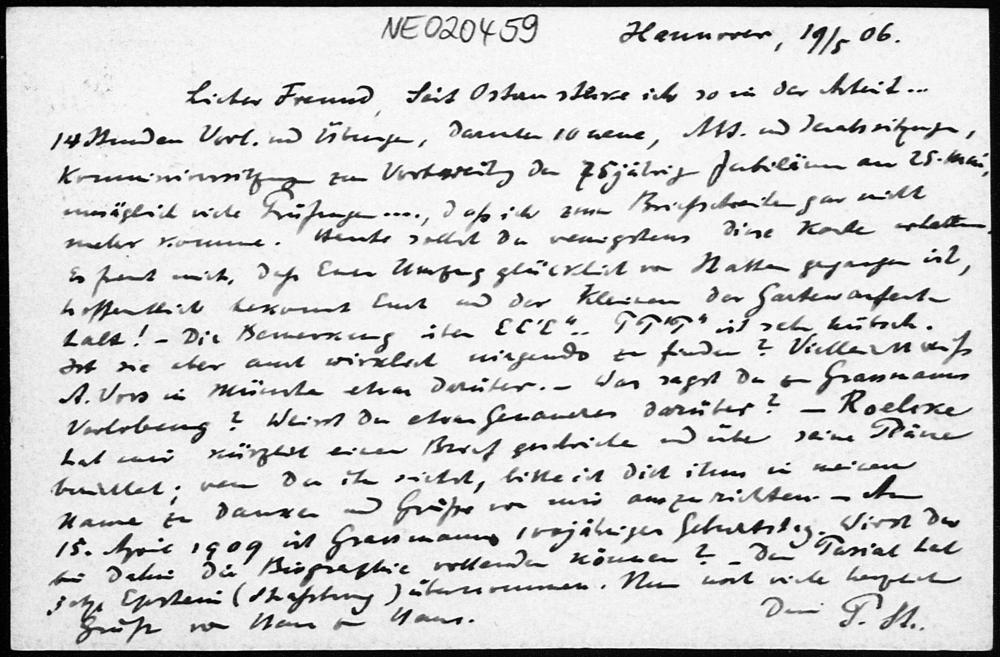 NE020459
Hannover, 19/5 06.
Lieber Freund, Seit Ostern stecke ich so in der Arbeit...
14 Stunden Vorl. und Übungen, darunter 10 neue, Abt. und Senatssitzungen,
Kommissionssitzungen zur Vorbereitung des 75jährig. Jubiläum am 25. Mai,
unsäglich viele Prüfungen..., daß ich zum Briefschreiben gar nicht
mehr komme. Heute sollst Du wenigstens diese Karte erhalten.
Es freut mich, daß Euer Umzug glücklich von Statten gegangen ist,
hoffentlich bekommt Euch und der Kleinen der Gartenaufent-
halt! – Die Bemerkung über
ist sehr hübsch.
Ist sie aber auch wirklich nirgends zu finden? Vielleicht weiß
A. Voss in München etwas darüber. – Was sagst Du zu Grassmanns
Verlobung? Weisst Du etwas Genaueres darüber? –
hat mir kürzlich einen Brief geschrieben und über seine Pläne
berichtet; wenn Du ihn siehst, bitte ich Dich ihm in meinem
Name zu danken und Grüße von mir auszurichten. – Am
15. April 1909 ist Grassmanns 100jähriger Geburtstag. Wirst Du
bis dahin die Biographie vollenden können? – Den Pascal hat
jetzt Epstein (Straßburg) übernommen. Nun noch viele herzliche
Grüße von Haus zu Haus.
Dein P. St.